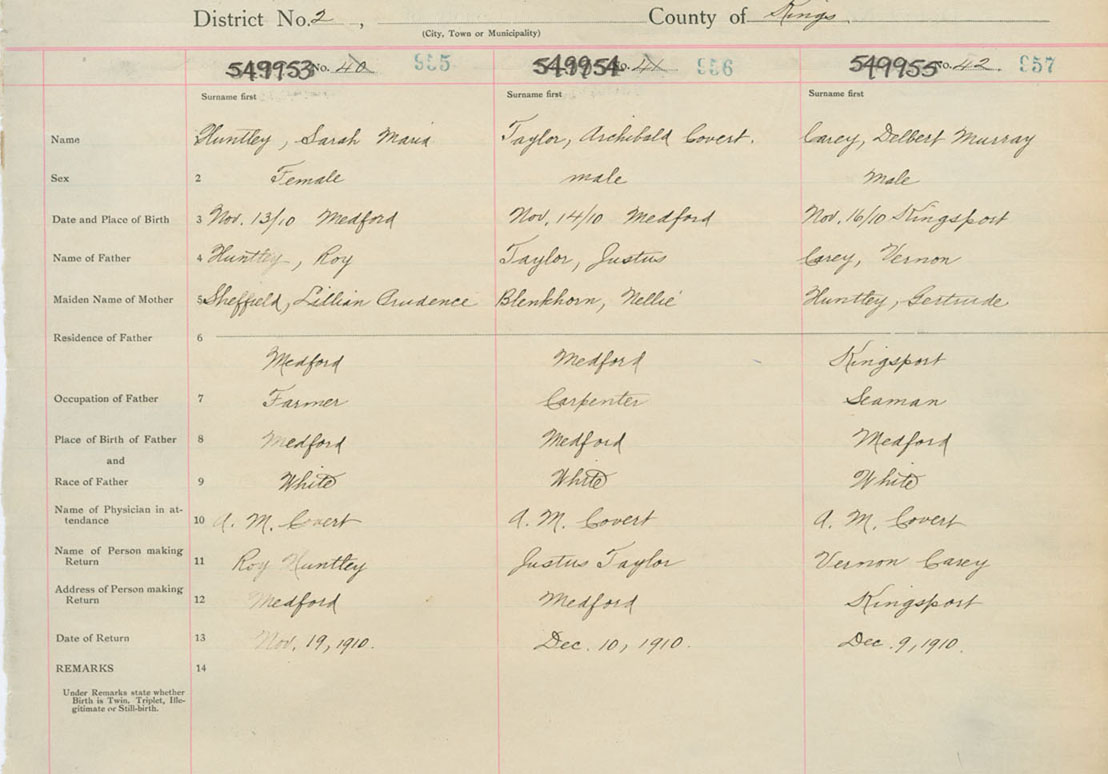 District No. 2 , County of Kings
(City, Town or Municipality)
549953 No. 40 955 549954 No. 41 956 549955 No. 42. 957
Surname first Surname first Surname first
Name Huntley, Sarah Maria Taylor, Archibald Covert. Carey, Delbert Murray
Sex 2 Female male Male
Date and Place of Birth 3 Nov. 13/10 Medford Nov. 14/10 Medford Nov. 16/10 Kingsport
Name of Father 4 Huntley, Roy Taylor, Justus Carey, Vernon
Maiden Name of Mother 5 Sheffield, Lillian Prudence Blenkhorn, Nellie Huntley, Gertrude
Residence of Father 6
Medford Medford Kingsport
Occupation of Father 7 Farmer Carpenter Seaman
Place of Birth of Father 8 Medford Medford Medford
and
Race of Father 9 White White White
Name of Physician in at-
tendance 10 A. M. Covert A. M. Covert A. M. Covert
Name of Person making
Return 11 Roy Huntley Justus Taylor Vernon Carey
Address of Person making
Return 12 Medford Medford Kingsport
Date of Return 13 Nov. 19, 1910. Dec. 10, 1910. Dec. 9, 1910.
REMARKS 14
Under Remarks state whether
Birth is Twin, Triplet, Ille-
gitimate or Still-birth.